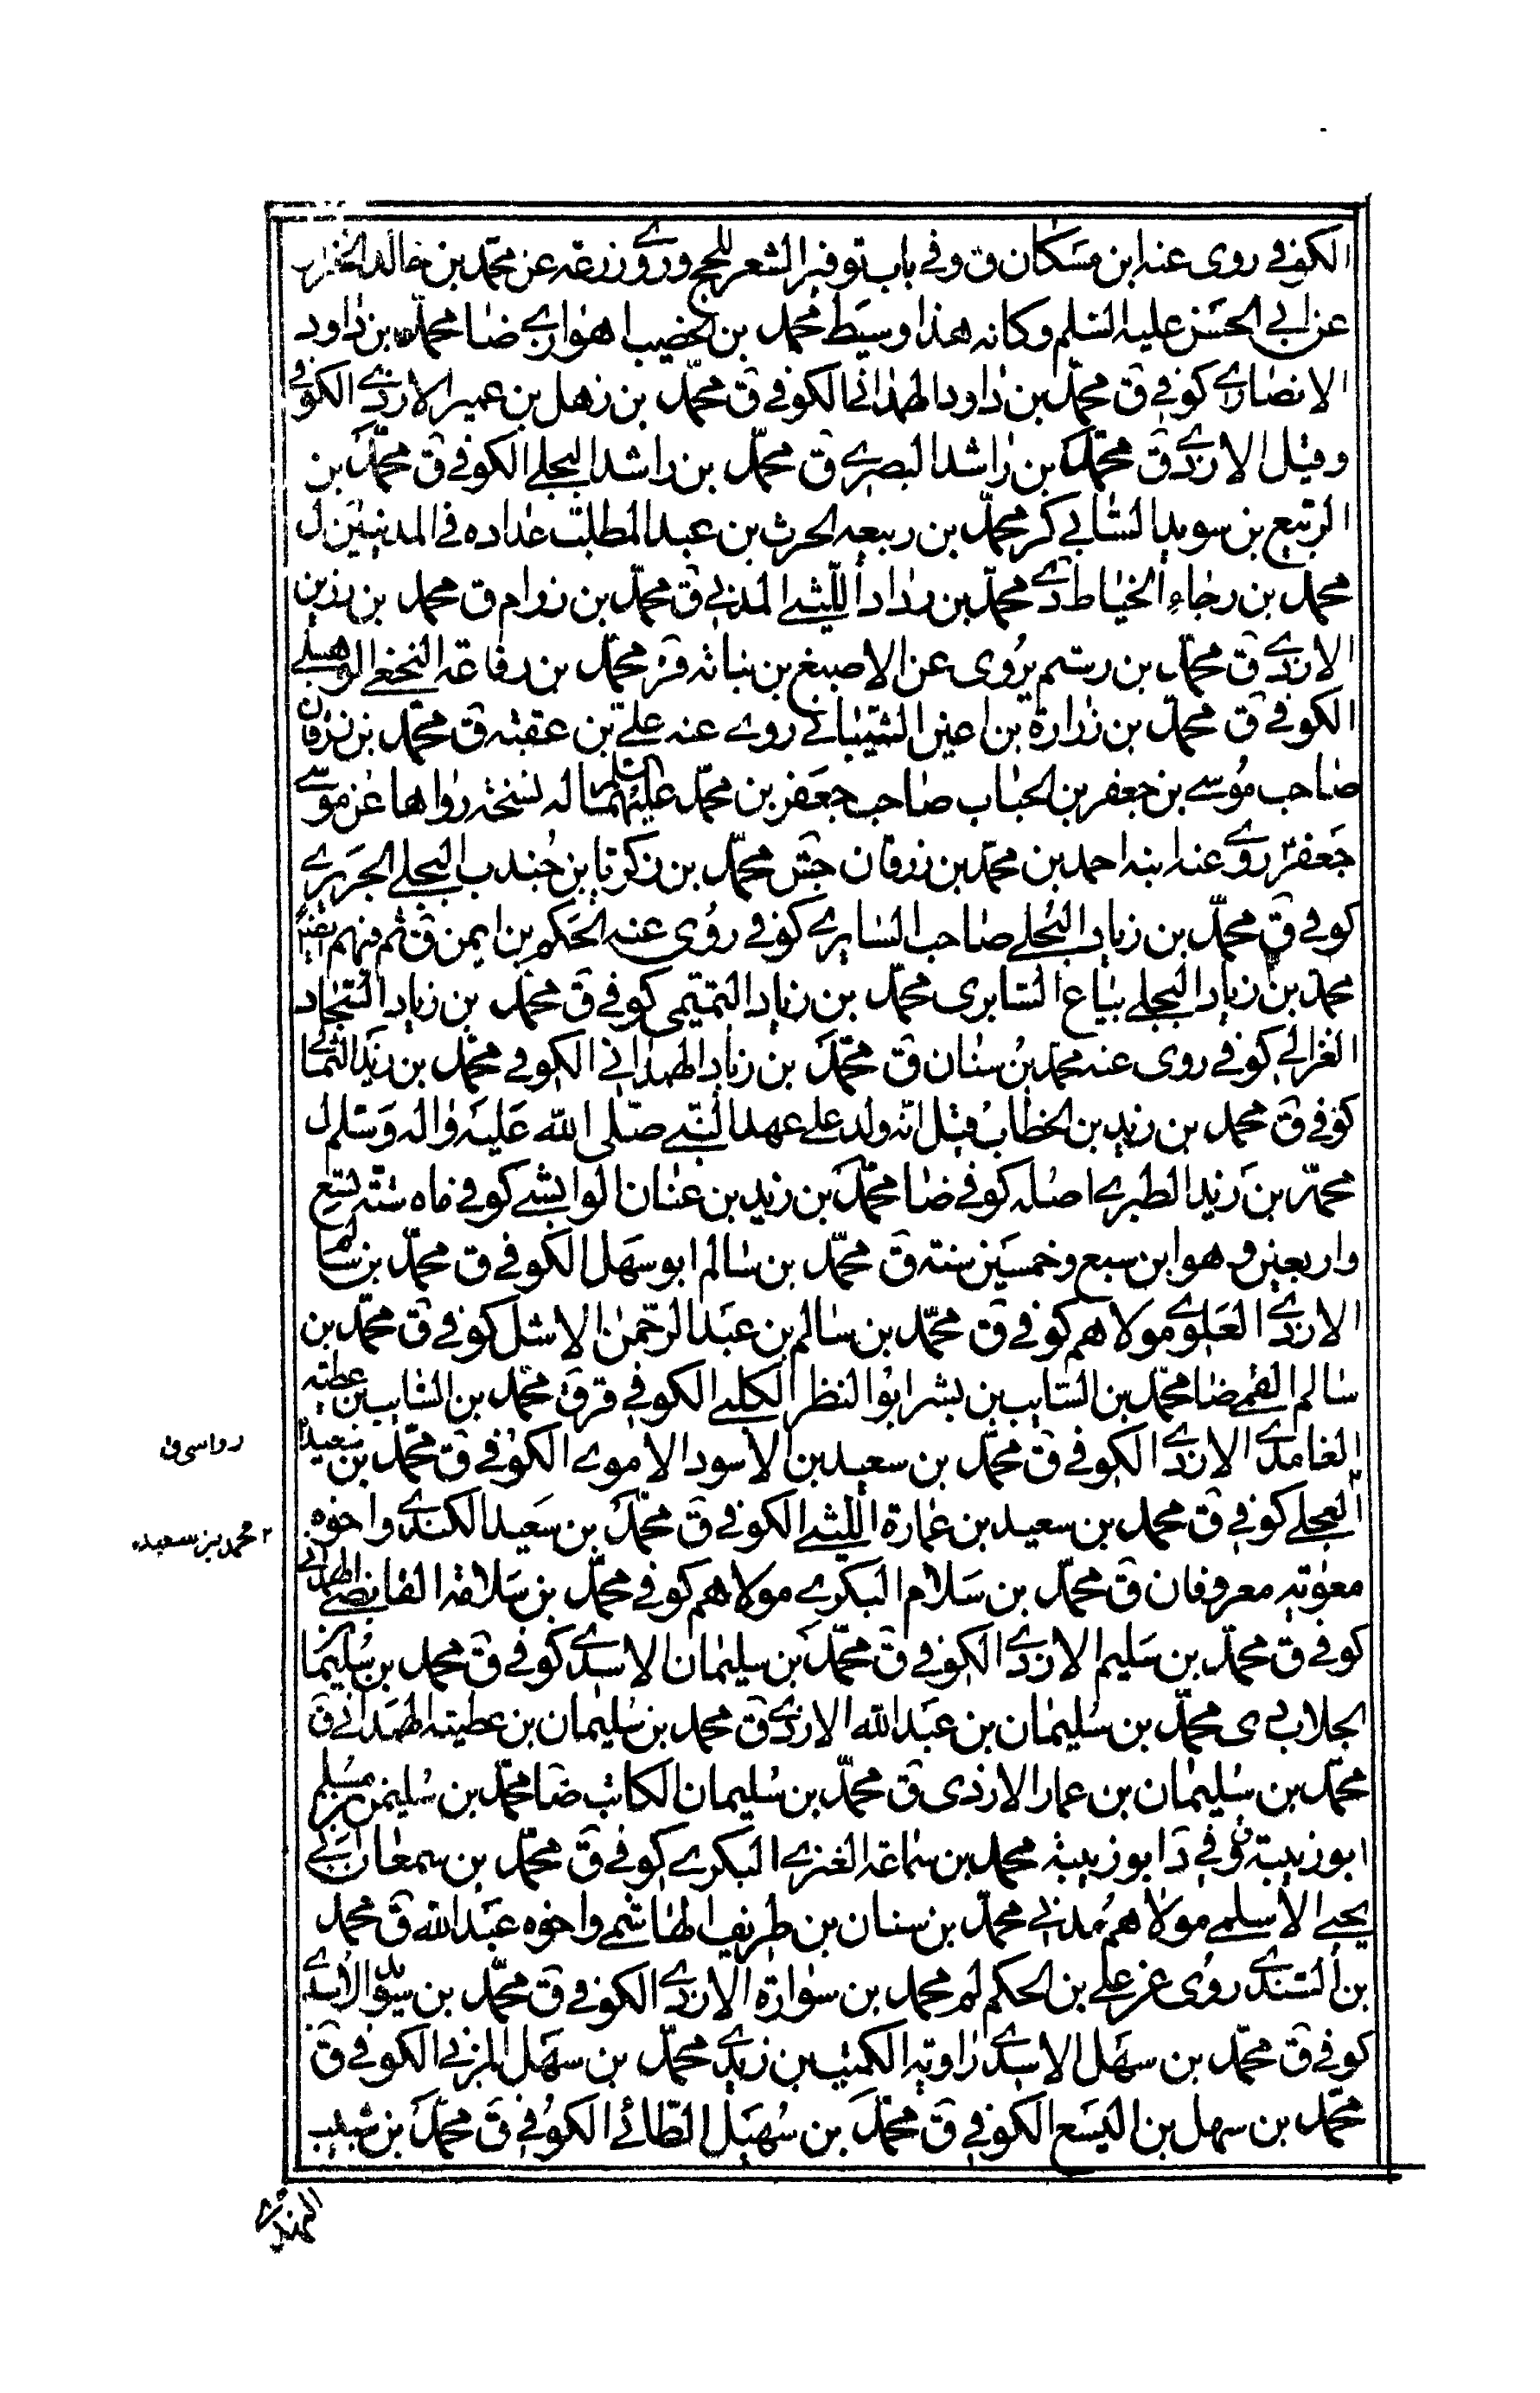 الكوفي روى عنه ابن مسكان ق وفي باب توفير الشعر للحج وروى زرعة عن محمد بن خالد الخزاز
عن ابي الحسن عليه السلم وكانه هذا وسيط محمد بن الخضيب اهوازي ضا محمد بن داود
الانصاري كوفي ق محمد بن داود الهمداني الكوفي ق محمد بن زهل بن عمير الازدي الكوفي
وقيل الازدي ق محمد بن راشد البصري ق محمد بن راشد البجلي الكوفي ق محمد بن
الربيع بن سويد السائي كر محمد بن ربيعه الحرث بن عبد المطلب عداده في المدنيين ل
محمد بن رجاء الخياط دي محمد بن رداد الليثي المدني ق محمد بن زوام ق محمد بن رزين
الازدي ق محمد بن رستم يروى عن الاصبغ بن نباته قر محمد بن رفاعة النخعي الوهبيلي
الكوفي ق محمد بن زرارة بن اعين الشيباني روى عنه علي بن عقبة ق محمد بن زرقان
صاحب موسى بن جعفر بن الحباب صاحب جعفر بن محمد عليهما السلم له نسخة رواها عن موسى
جعفر روى عنه ابنه احمد بن محمد بن زرقان جش محمد بن زكريا بن جندب البجلي الجريري
كوفي ق محمد بن زياد البجلي صاحب السابري كوفي روى عنه الحكم بن ايمن ق ثم فيهم ايضا
محمد بن زياد البجلي بياع السابرى محمد بن زياد التميمى كوفي ق محمد بن زياد السجاد
الغزالي كوفي روى عنه محمد بن سنان ق محمد بن زياد الهمداني الكوفي محمد بن زيد الثمالي
كوفي ق محمد بن زيد بن الخطاب قيل انه ولد على عهد النبي صلى الله عليه واله وسلم ل
محمد بن زيد الطبري اصله كوفي ضا محمد بن زيد بن عنان الوابشي كوفي ماه سنة تسع
واربعين وهو ابن سبع وخمسين سنة ق محمد بن سالم ابو سهل الكوفي ق محمد بن سالم
الازدي العلوي مولاهم كوفي ق محمد بن سالم بن عبد الرحمن الاشل كوفي ق محمد بن
سالم القمي ضا محمد بن السايب بن بشر ابو النظر الكلبي الكوفي قر ق محمد بن السايب بن عطية
الغامدي الازدي الكوفي ق محمد بن سعيد بن الاسود الاموي الكوفي ق محمد بن سعيد
رواسى ق
البجلي كوفي ق محمد بن سعيد بن عمارة الليثي الكوفي ق محمد بن سعيد الكندي واخوه
٢ محمد بن سعيد
معوية معروفان ق محمد بن سلام البكري مولاهم كوفي محمد بن سلامة القابضي الهمداني
كوفي ق محمد بن سليم الازدي الكوفي ق محمد بن سليمان الاسدي كوفي ق محمد بن سليمان
الجلاب دي محمد بن سليمان بن عبد الله الازدي ق محمد بن سليمان بن عطية الهمداني ق
محمد بن سليمان بن عمار الازدى ق محمد بن سليمان الكاتب ضا محمد بن سليمن بن مسلم
ابو زبيبة ق وفي د ابو زبيبة محمد بن سماعة العنزي البكري كوفي ق محمد بن سمعان بن ابي
يحيى الاسلمي مولاهم مدني محمد بن سنان بن طريف الهاشمي واخوه عبد الله ق محمد
بن السندي روى عن علي بن الحكم لم محمد بن سوارة الازدي الكوفي ق محمد بن سويد الاسدي
كوفي ق محمد بن سهل الاسدي راوية الكميت بن زيد محمد بن سهل المزني الكوفي ق
محمد بن سهل بن اليسع الكوفي ق محمد بن سهيل الطائي الكوفي ق محمد بن شبيب
النهدي